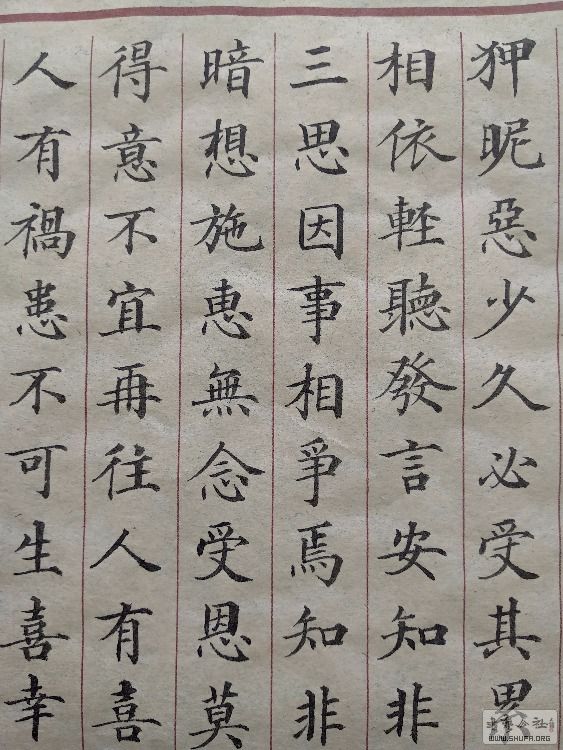 狎昵惡少久必受其累
相依軽聽發言安知非
三思因事相爭焉知非
暗想施惠無念受恩莫
得意不宜再往人有喜
人有禍患不可生喜幸
WWW.SHUFA.ORG